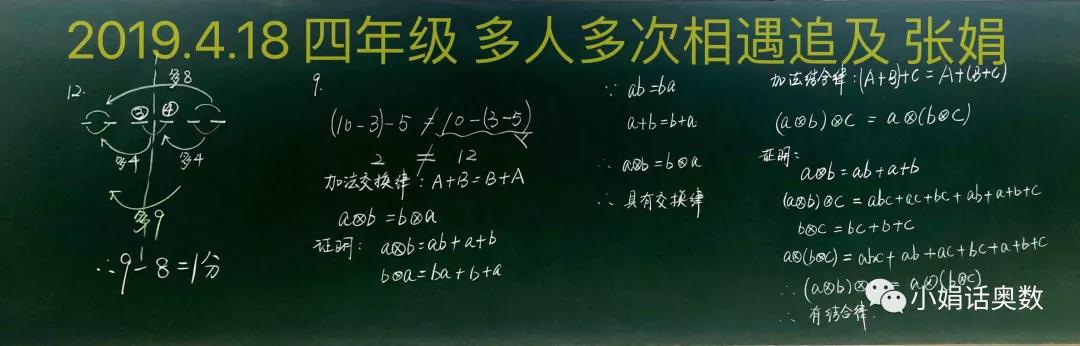 2019.4.18 四年级 多人多次相遇追及 张娟
12.
多8
③ ④
多4 多4
多9
∴9-8=1分
9.
(10-3)-5≠10-(3-5)
2 ≠ 12
加法交换律:A+B=B+A
a⊗b=b⊗a
证明: a⊗b=ab+a+b
b⊗a=ba+b+a
∵ ab=ba
a+b=b+a
∴ a⊗b=b⊗a
∴ 具有交换律
加法结合律:(A+B)+C=A+(B+C)
(a⊗b)⊗c = a⊗(b⊗c)
证明:
a⊗b=ab+a+b
(a⊗b)⊗c=abc+ac+bc+ab+a+b+c
b⊗c=bc+b+c
a⊗(b⊗c)=abc+ab+ac+bc+a+b+c
∴ (a⊗b)⊗ = a⊗(b⊗c)
∴ 有结合律.
小娟话奥数